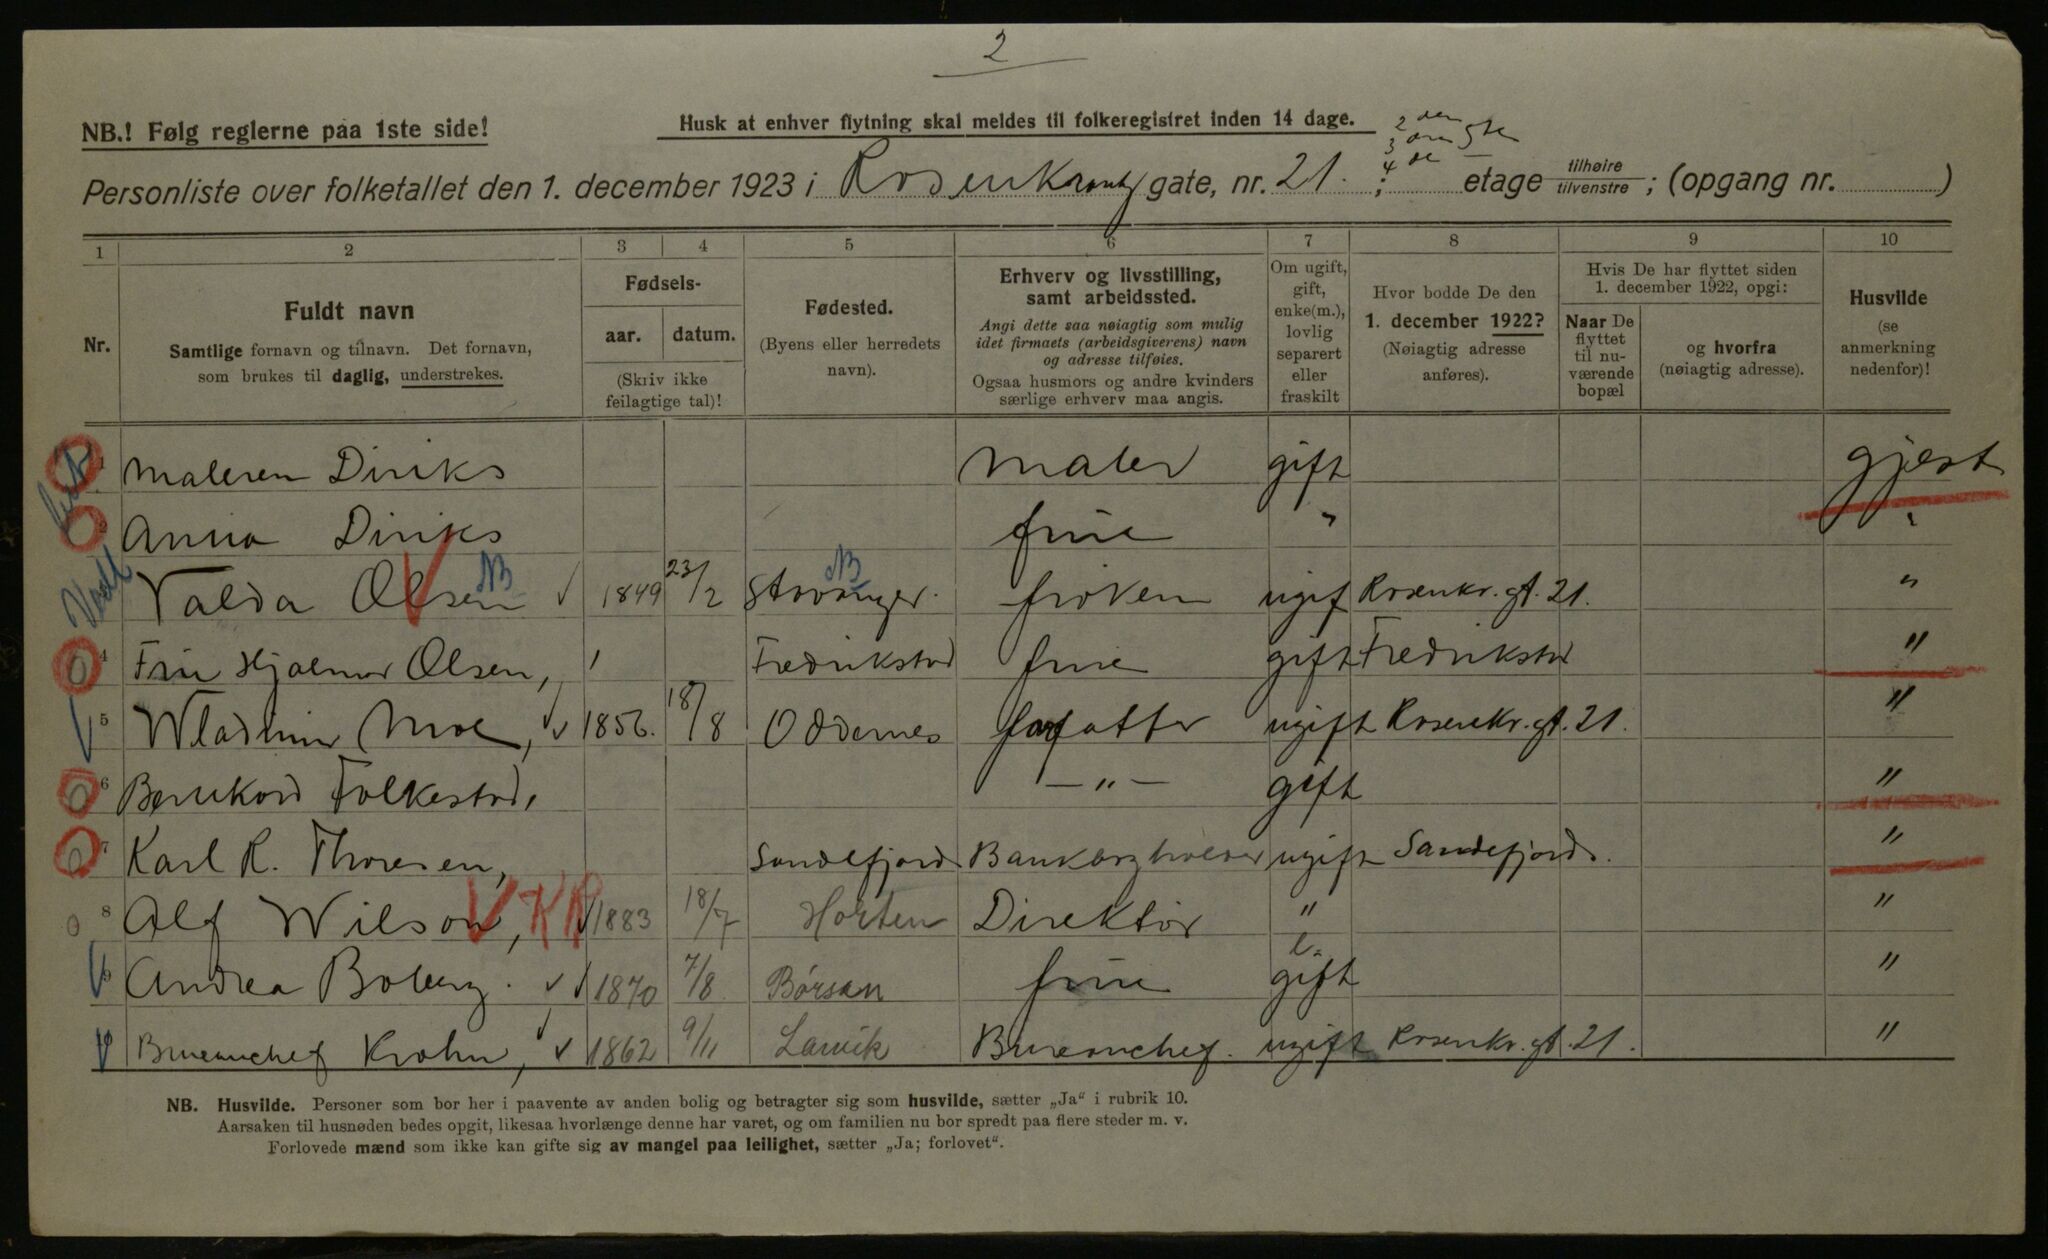 2
NB.! Følg reglerne paa 1ste side!
Husk at enhver flytning skal meldes til folkeregistret inden 14 dage.
2 den 5te
3 dre
4 de
Personliste over folketallet den 1. december 1923 i Rosenkrantz gate, nr. 21. ; etage tilhøire tilvenstre ; (opgang nr. )
1 2 3 4 5 6 7 8 9 10
Nr.
Fuldt navn
Samtlige fornavn og tilnavn. Det fornavn,
som brukes til daglig, understrekes.
Fødsels-
aar. datum.
(Skriv ikke
feilagtige tal)!
Fødested.
(Byens eller herredets
navn).
Erhverv og livsstilling,
samt arbeidssted.
Angi dette saa nøiagtig som mulig
idet firmaets (arbeidsgiverens) navn
og adresse tilføies.
Ogsaa husmors og andre kvinders
særlige erhverv maa angis.
Om ugift,
gift,
enke(m.),
lovlig
separert
eller
fraskilt
Hvor bodde De den
1. december 1922?
(Nøiagtig adresse
anføres).
Hvis De har flyttet siden
1. december 1922, opgi:
Naar De
flyttet
til nu-
værende
bopæl
og hvorfra
(nøiagtig adresse).
Husvilde
(se
anmerkning
nedenfor)!
1 Maleren Diriks Maler gift gjest
2 Anna Diriks frue " "
Valda Olsen NB 1849 23/2 Stavanger NB frøken ugif Rosenkr. gt. 21. "
4 Fru Hjalmar Olsen, Fredrikstad frue gift Fredrikstad "
5 Wladimir Moe, 1856. 18/8 Oddernes forfatter ugift Rosenkr. gt. 21. "
6 Bernhard Folkestad, — " — gift "
7 Karl R. Thoresen, Sandefjord Bankbogholder ugift Sandefjord. "
8 Alf Wilson, KR 1883 18/7 Horten Direktør " "
9 Andrea Boberg. 1870 7/8 Børsen frue gift "
10 Bureauchef Krohn, 1862 9/11 Larvik Bureauchef. ugift Rosenkr. gt. 21. "
NB. Husvilde. Personer som bor her i paavente av anden bolig og betragter sig som husvilde, sætter „Ja“ i rubrik 10.
Aarsaken til husnøden bedes opgit, likesaa hvorlænge denne har varet, og om familien nu bor spredt paa flere steder m. v.
Forlovede mænd som ikke kan gifte sig av mangel paa leilighet, sætter „Ja; forlovet“.